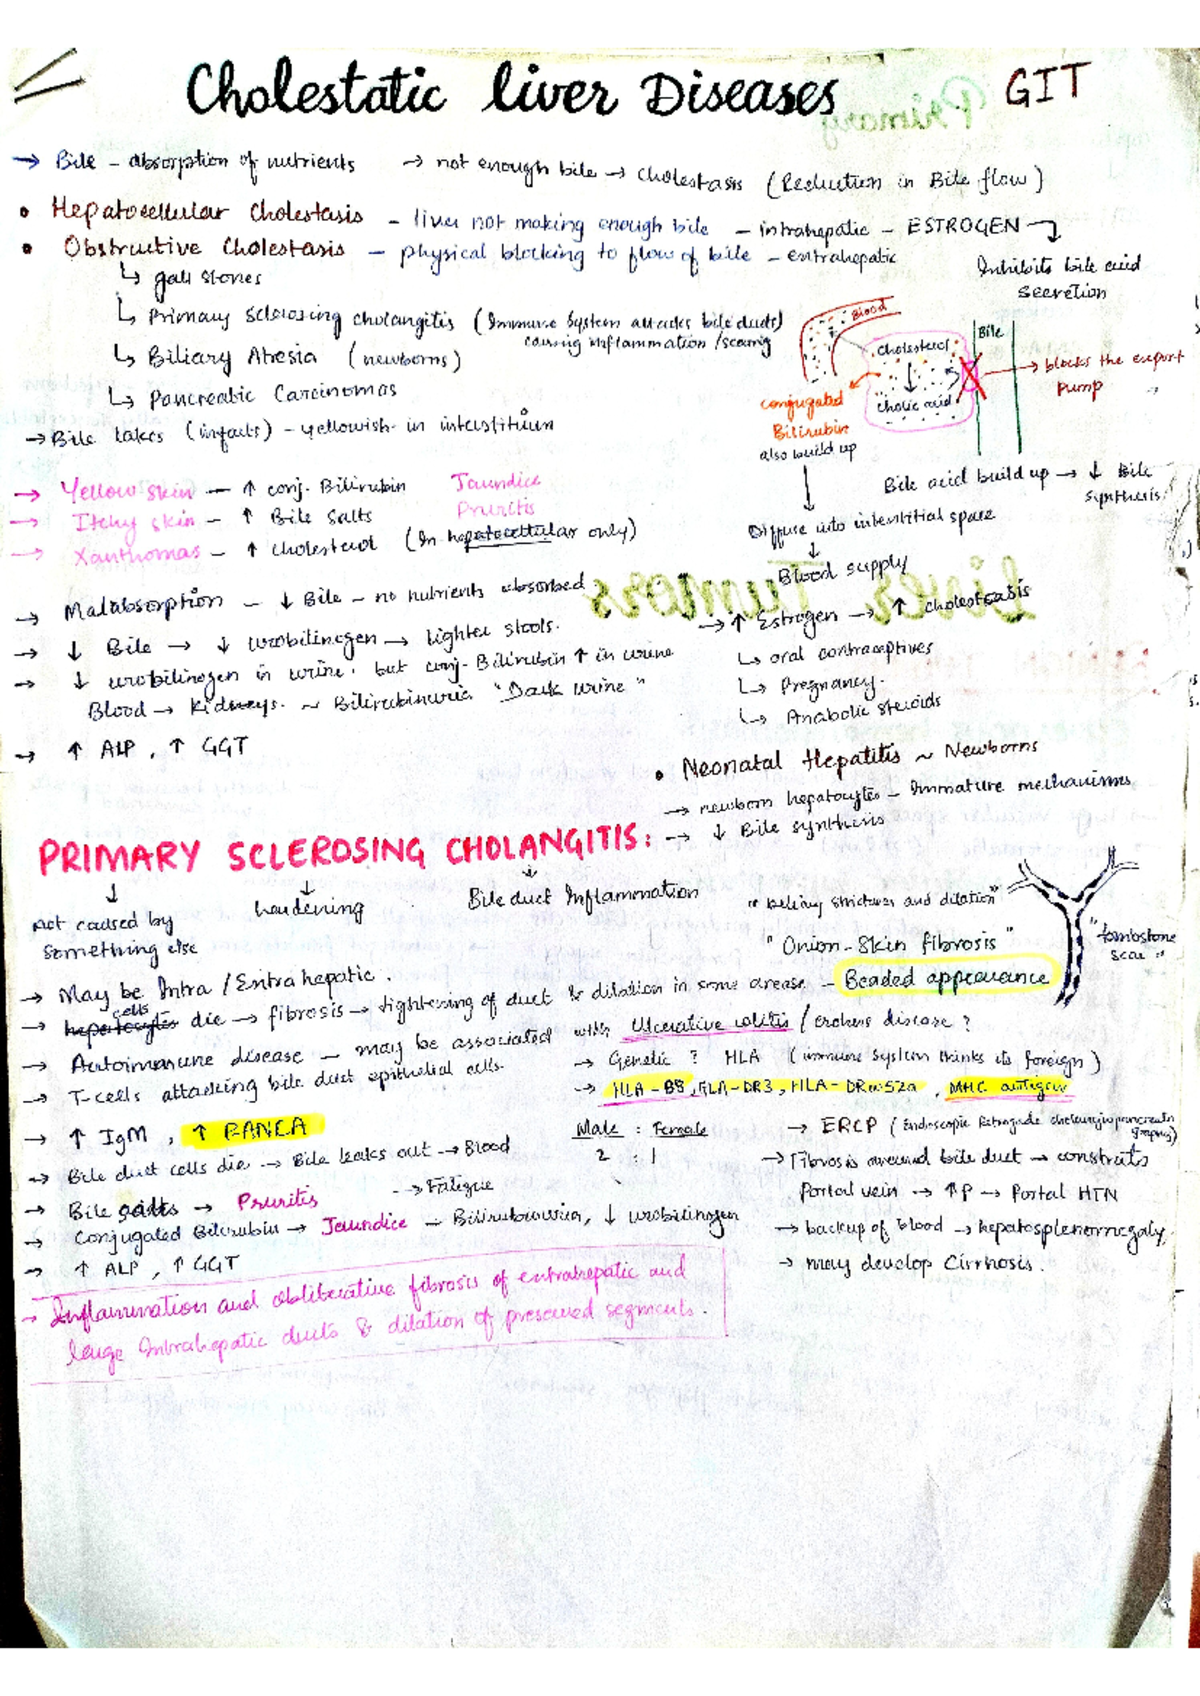 Cholestatic liver Diseases GIT
→ Bile - absorption of nutrients → not enough bile → cholestasis (Reduction in Bile flow)
• Hepatocellular Cholestasis - liver not making enough bile - intrahepatic - ESTROGEN
• Obstructive Cholestasis - physical blocking to flow of bile - extrahepatic
Inhibits bile acid
secretion
↳ gall stones
↳ Primary Sclerosing cholangitis (Immune System attacks bile ducts)
causing inflammation / scarring
↳ Biliary Atresia (newborns)
↳ Pancreatic Carcinomas
→ Bile lakes (infarcts) - yellowish in interstitium
Blood
Cholesterol
Bile
cholic acid
→ blocks the export
pump
conjugated
Bilirubin
also build up
Bile acid build up → ↓ Bile
synthesis
Diffuse into interstitial space
↓
Blood supply
→ Yellow skin - ↑ conj. Bilirubin Jaundice
→ Itchy skin - ↑ Bile Salts Pruritis
→ Xanthomas - ↑ cholesterol (In hepatocellular only)
→ Malabsorption - ↓ Bile - no nutrients absorbed
→ ↓ Bile → ↓ urobilinogen → lighter stools.
→ ↓ urobilinogen in urine. but conj. Bilirubin ↑ in urine
Blood → Kidneys. ~ Bilirubinuria "Dark urine"
→ ↑ ALP, ↑ GGT
→ ↑ Estrogen → ↑ cholestasis
↳ oral contraceptives
↳ Pregnancy.
↳ Anabolic steroids
• Neonatal Hepatitis ~ Newborns
→ newborn hepatocytes - Immature mechanisms
→ ↓ Bile synthesis
PRIMARY SCLEROSING CHOLANGITIS:
↓ ↓ ↓
not caused by
something else
hardening
Bile duct Inflammation
strictures and dilation"
"Onion-Skin fibrosis"
"tombstone
scar"
→ May be Intra / Extra hepatic.
→ hepatocytes cells die → fibrosis → tightening of duct & dilation in some areas - Beaded appearance
→ Autoimmune disease - may be associated with Ulcerative colitis / crohns disease?
→ T-cells attacking bile duct epithelial cells.
→ Genetic? HLA (immune system thinks its foreign)
→ HLA-B8, HLA-DR3, HLA-DRw52a, MHC antigen
→ ↑ IgM, ↑ PANCA
Male : Female
2 : 1
→ Bile duct cells die → Bile leaks out → Blood
→ Bile salts → Pruritis --→ Fatigue
→ Conjugated Bilirubin → Jaundice - Bilirubinuria, ↓ urobilinogen
→ ↑ ALP, ↑ GGT
→ ERCP (Endoscopic Retrograde
→ Fibrosis around bile duct → constricts
Portal vein → ↑P → Portal HTN
→ backup of blood → hepatosplenomegaly
→ may develop Cirrhosis.
→ Inflammation and obliterative fibrosis of extrahepatic and
large Intrahepatic ducts & dilation of preserved segments.